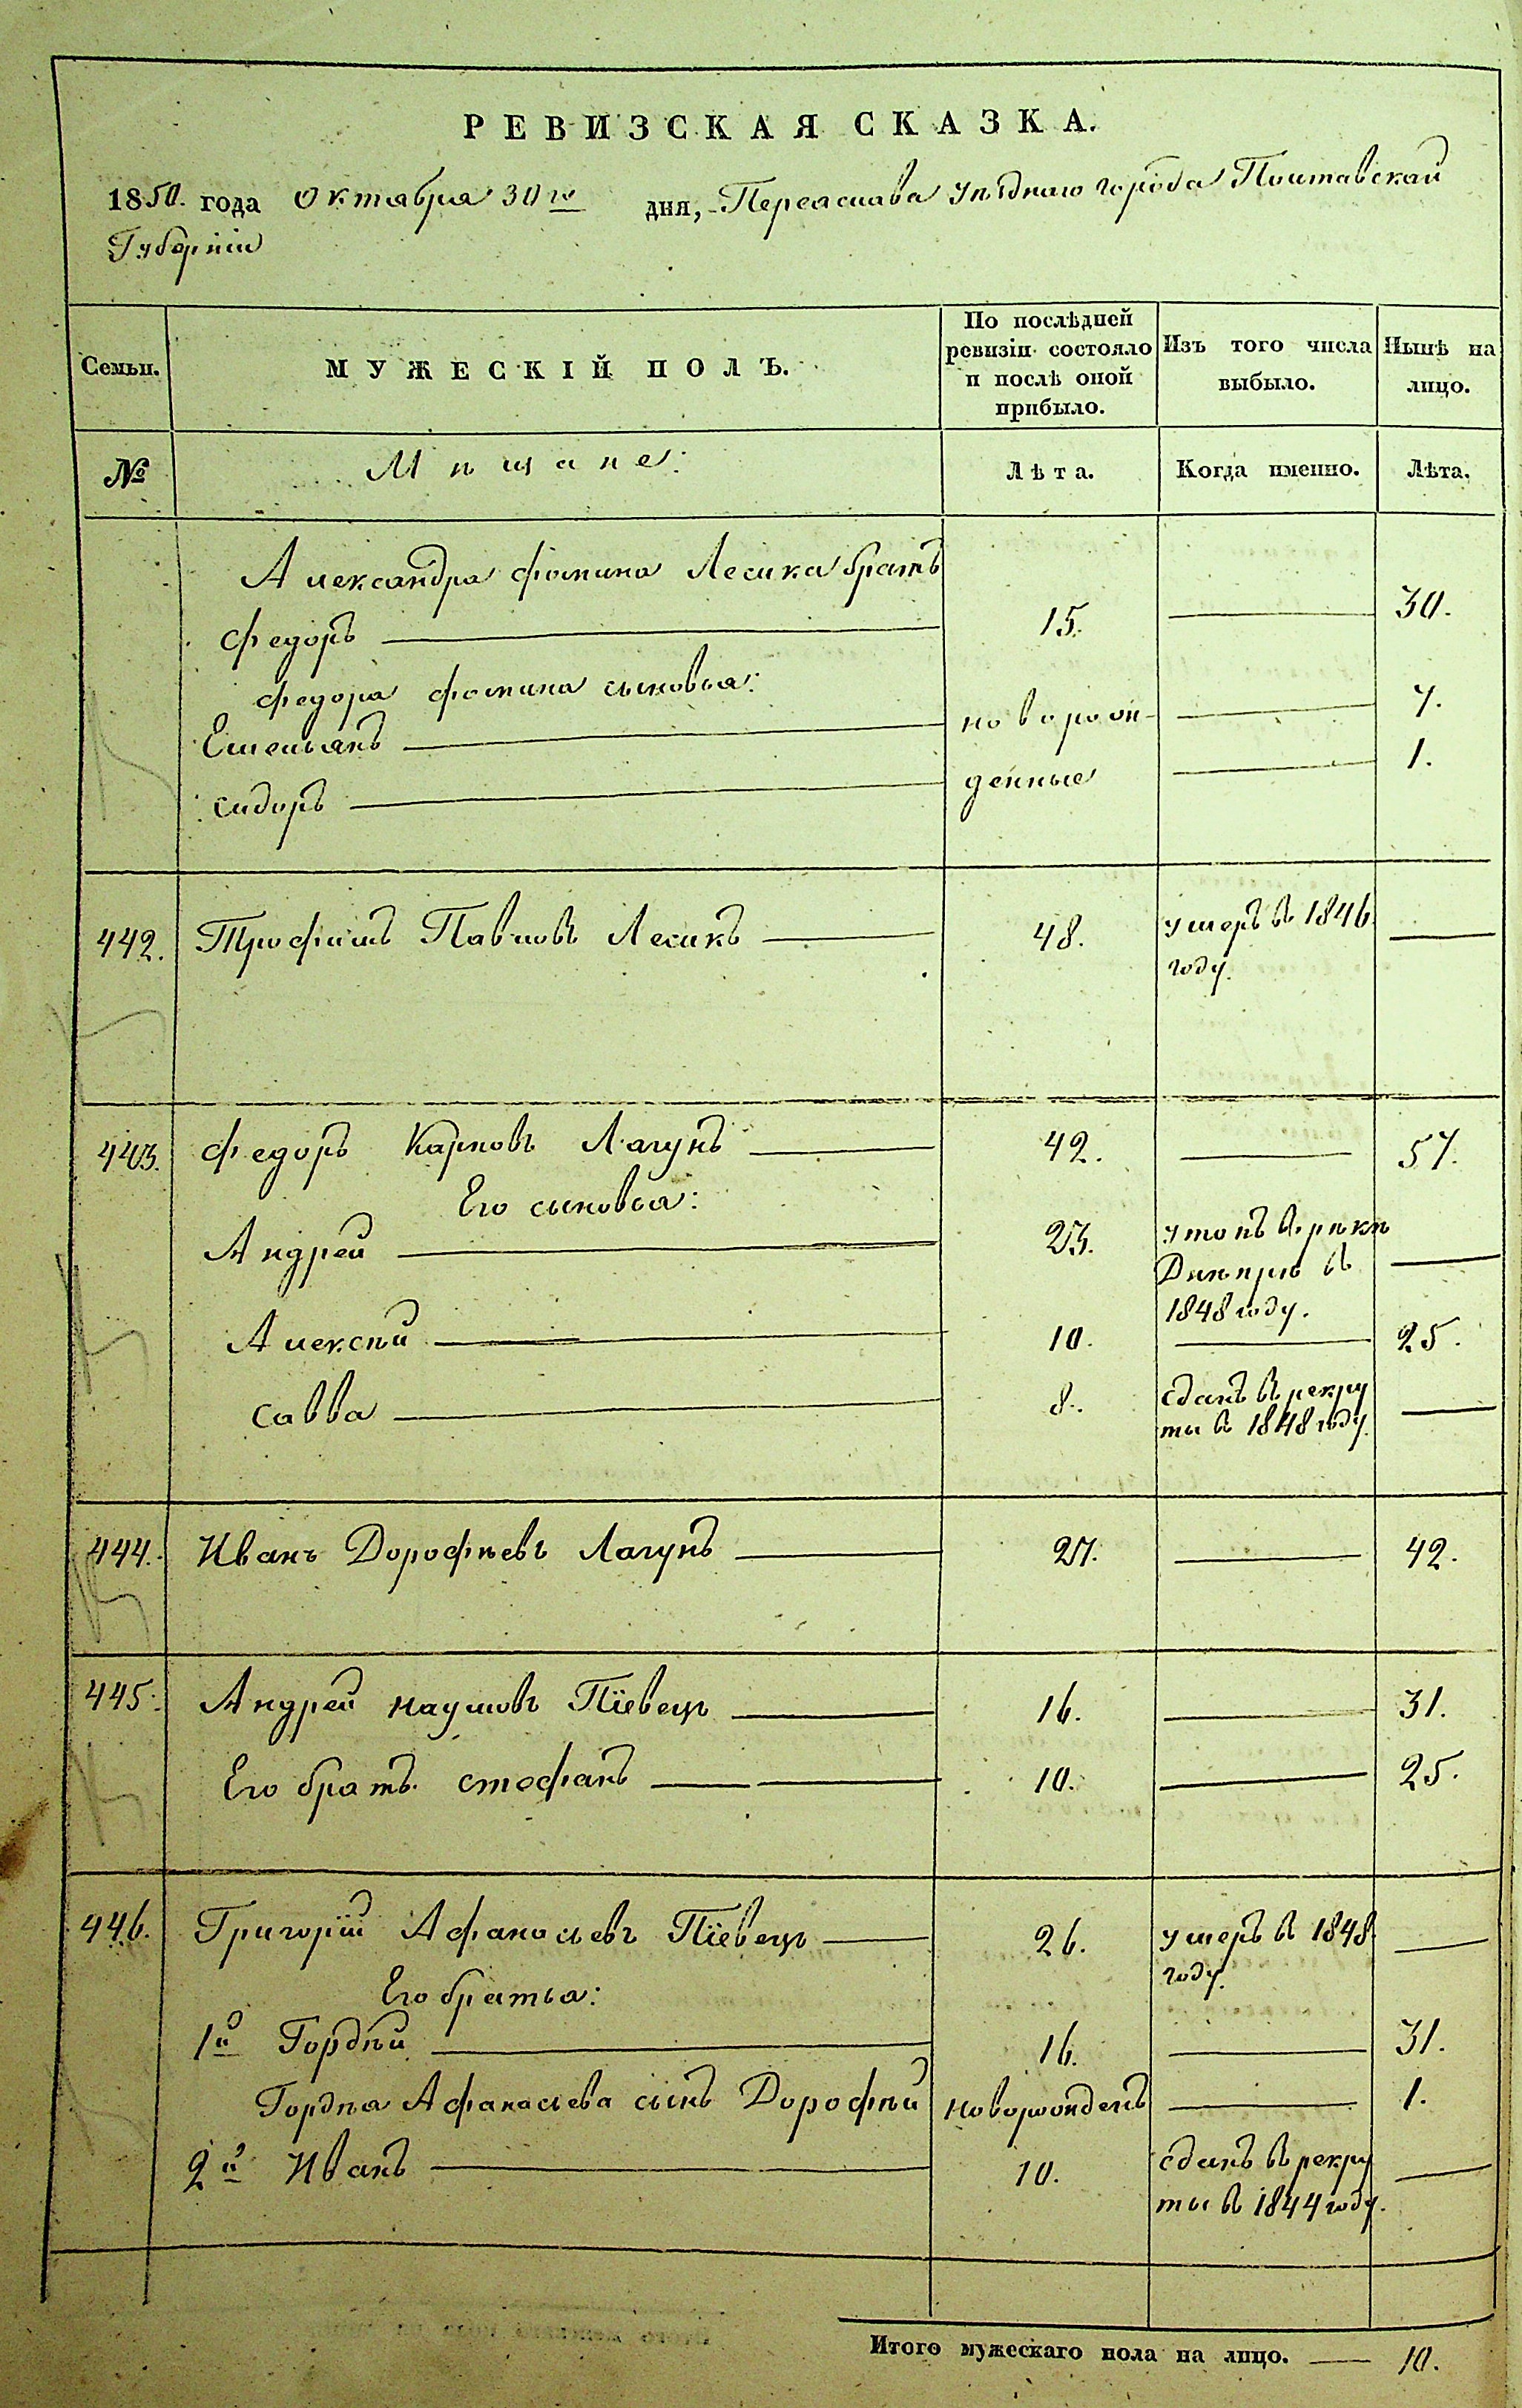 РЕВИЗСКАЯ СКАЗКА.
1850. года Октября 30го дня, Переаслава уѣзднаго города Полтавской
Губерніи
Семьи. МУЖЕСКІЙ ПОЛЪ. По послѣдней ревизіи состояло и послѣ оной прибыло. Изъ того числа выбыло. Нынѣ на лицо.
№ Мѣщане: Лѣта. Когда именно. Лѣта.
Александра Фомина Лесика братъ
Федоръ 15. 30.
Федора Фомина сыновья:
Емельянъ новорож- 7.
Сидоръ денные 1.
442. Трофимъ Павловъ Лесикъ 48. умеръ въ 1846.
году.
443. Федоръ Карповъ Лагунъ 42. 57.
Его сыновья:
Андрей 23. утопъ въ рѣкѣ
Днѣпрѣ въ
1848 году.
Алексѣй 10. 25.
Савва 8. сданъ въ рекру
ты въ 1848 году.
444. Иванъ Дорофѣевъ Лагунъ 27. 42.
445. Андрей Наумовъ Піевецъ 16. 31.
Его братъ Стефанъ 10. 25.
446. Григорій Афанасьевъ Піевецъ 26. умеръ въ 1848.
году.
Его братья:
1й Гордѣй 16. 31.
Гордѣя Афанасьева сынъ Дорофѣй новорожденъ 1.
2й Иванъ 10. сданъ въ рекру
ты въ 1844 году.
Итого мужескаго пола на лицо. 10.